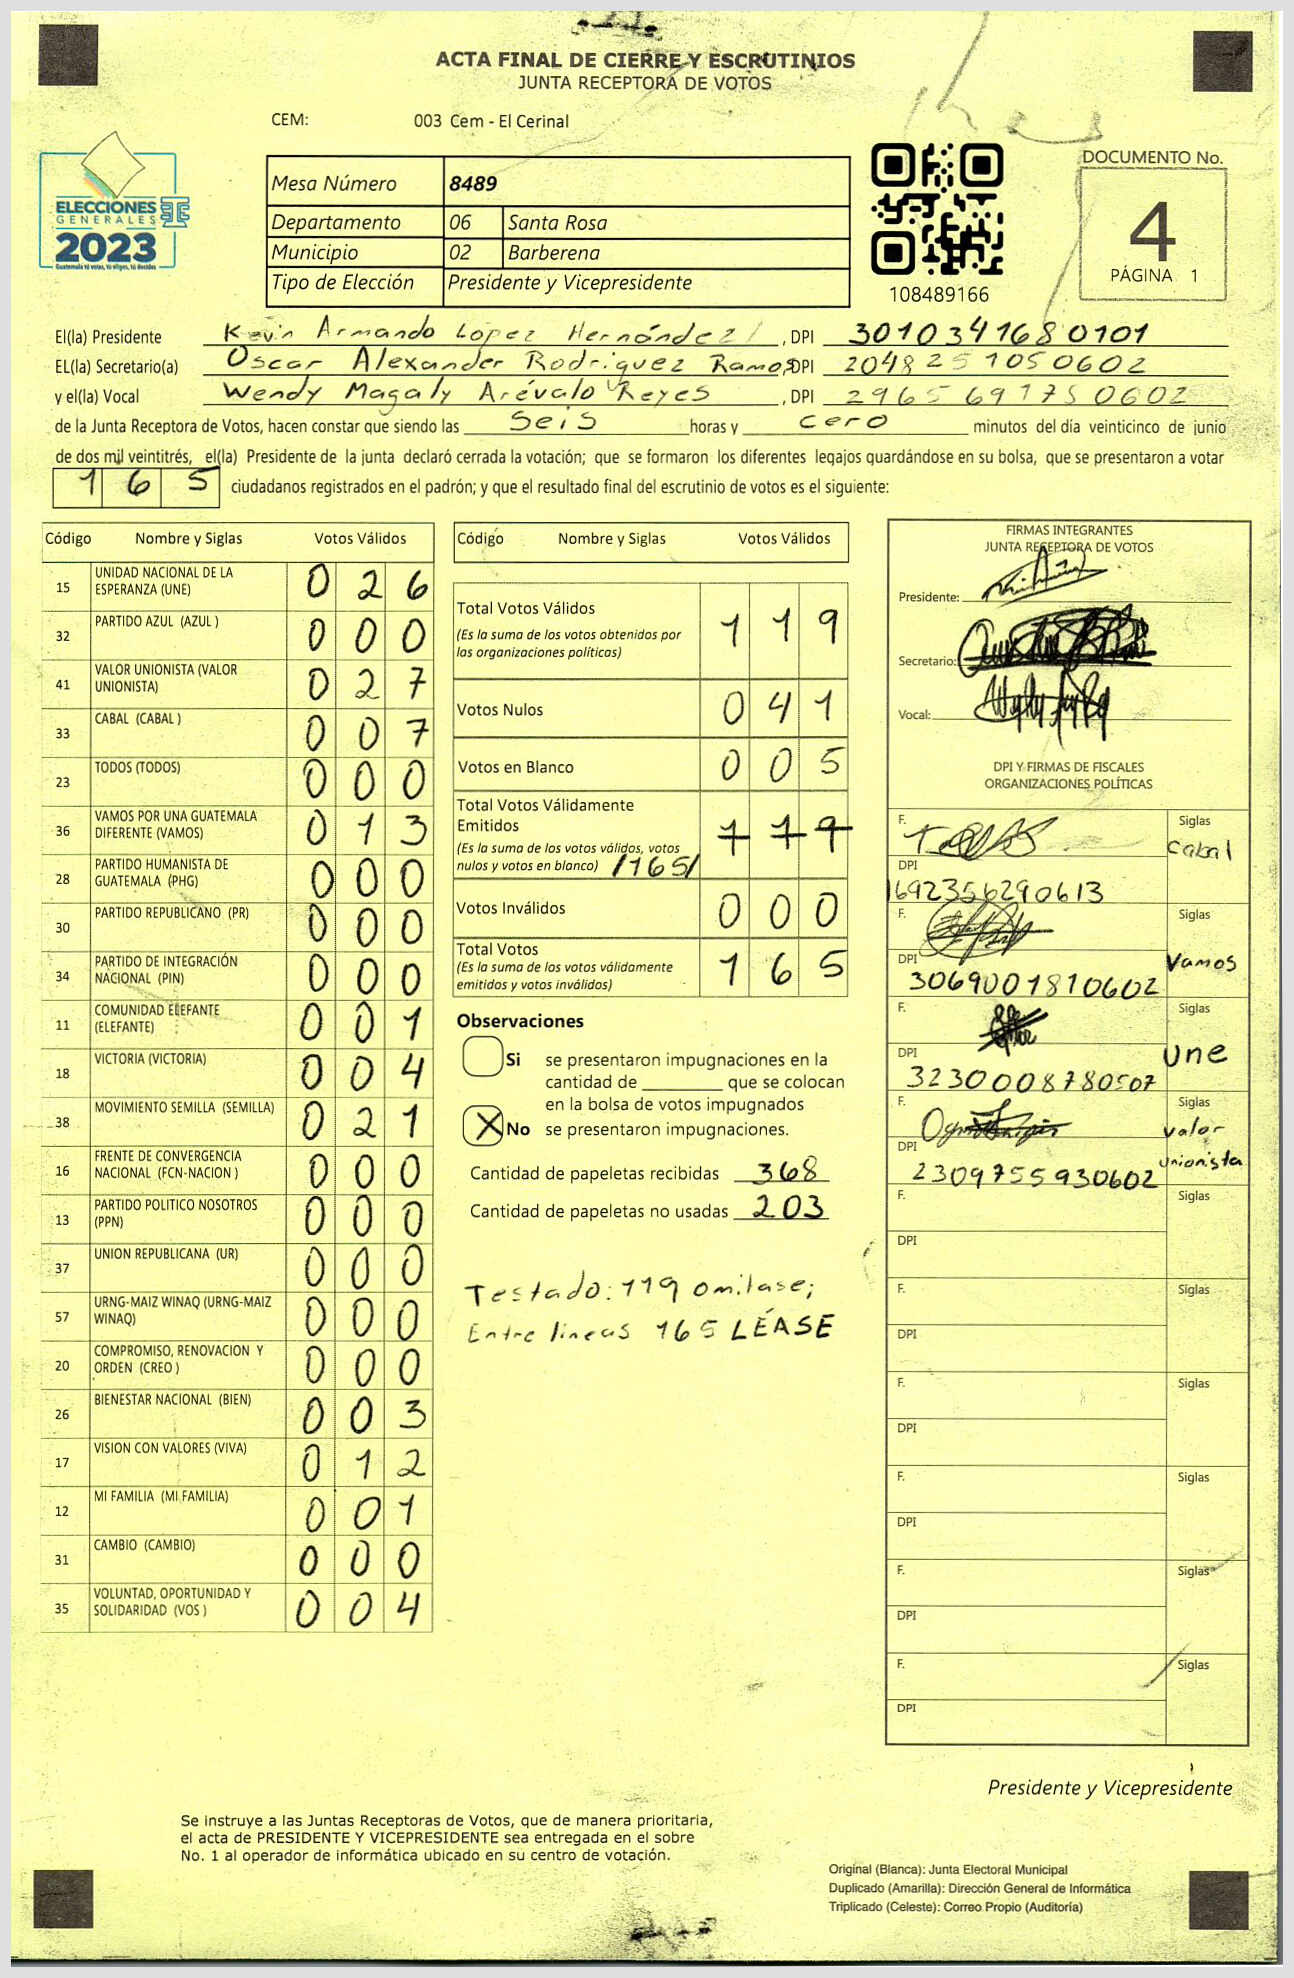 ACTA FINAL DE CIERRE Y ESCRUTINIOS
JUNTA RECEPTORA DE VOTOS
CEM: 003 Cem - El Cerinal
ELECCIONES
GENERALES
2023
Guatemala tú votas, tú eliges, tú decides
Mesa Número 8489
Departamento 06 Santa Rosa
Municipio 02 Barberena
Tipo de Elección Presidente y Vicepresidente
108489166
DOCUMENTO No.
4
PÁGINA 1
El(la) Presidente Kevin Armando López Hernández , DPI 3010341680101
EL(la) Secretario(a) Oscar Alexander Rodriguez Ramos, DPI 2048251050602
y el(la) Vocal Wendy Magaly Arévalo Reyes , DPI 2965691750602
de la Junta Receptora de Votos, hacen constar que siendo las seis horas y cero minutos del día veinticinco de junio
de dos mil veintitrés, el(la) Presidente de la junta declaró cerrada la votación; que se formaron los diferentes legajos guardándose en su bolsa, que se presentaron a votar
1 6 5 ciudadanos registrados en el padrón; y que el resultado final del escrutinio de votos es el siguiente:
Código Nombre y Siglas Votos Válidos
15 UNIDAD NACIONAL DE LA
ESPERANZA (UNE) 0 2 6
32 PARTIDO AZUL (AZUL ) 0 0 0
41 VALOR UNIONISTA (VALOR
UNIONISTA) 0 2 7
33 CABAL (CABAL ) 0 0 7
23 TODOS (TODOS) 0 0 0
36 VAMOS POR UNA GUATEMALA
DIFERENTE (VAMOS) 0 1 3
28 PARTIDO HUMANISTA DE
GUATEMALA (PHG) 0 0 0
30 PARTIDO REPUBLICANO (PR) 0 0 0
34 PARTIDO DE INTEGRACIÓN
NACIONAL (PIN) 0 0 0
11 COMUNIDAD ELEFANTE
(ELEFANTE) 0 0 1
18 VICTORIA (VICTORIA) 0 0 4
38 MOVIMIENTO SEMILLA (SEMILLA) 0 2 1
16 FRENTE DE CONVERGENCIA
NACIONAL (FCN-NACION ) 0 0 0
13 PARTIDO POLITICO NOSOTROS
(PPN) 0 0 0
37 UNION REPUBLICANA (UR) 0 0 0
57 URNG-MAIZ WINAQ (URNG-MAIZ
WINAQ) 0 0 0
20 COMPROMISO, RENOVACION Y
ORDEN (CREO ) 0 0 0
26 BIENESTAR NACIONAL (BIEN) 0 0 3
17 VISION CON VALORES (VIVA) 0 1 2
12 MI FAMILIA (MI FAMILIA) 0 0 1
31 CAMBIO (CAMBIO) 0 0 0
35 VOLUNTAD, OPORTUNIDAD Y
SOLIDARIDAD (VOS ) 0 0 4
Código Nombre y Siglas Votos Válidos
Total Votos Válidos 1 1 9
(Es la suma de los votos obtenidos por
las organizaciones políticas)
Votos Nulos 0 4 1
Votos en Blanco 0 0 5
Total Votos Válidamente
Emitidos 1 1 9
(Es la suma de los votos válidos, votos
nulos y votos en blanco) /165/
Votos Inválidos 0 0 0
Total Votos 1 6 5
(Es la suma de los votos válidamente
emitidos y votos inválidos)
Observaciones
Si se presentaron impugnaciones en la
cantidad de ________ que se colocan
en la bolsa de votos impugnados
X No se presentaron impugnaciones.
Cantidad de papeletas recibidas 368
Cantidad de papeletas no usadas 203
Testado: 119 omitase;
Entre líneas 165 LÉASE
FIRMAS INTEGRANTES
JUNTA RECEPTORA DE VOTOS
Presidente:
Secretario:
Vocal:
DPI Y FIRMAS DE FISCALES
ORGANIZACIONES POLÍTICAS
F. Siglas
Cabal
DPI
1692356290613
F. Siglas
DPI Vamos
3069001810602
F. Siglas
DPI une
3230008780507
F. Siglas
valor
DPI unionista
2309755930602
F. Siglas
DPI
F. Siglas
DPI
F. Siglas
DPI
F. Siglas
DPI
F. Siglas
DPI
F. Siglas
DPI
Presidente y Vicepresidente
Se instruye a las Juntas Receptoras de Votos, que de manera prioritaria,
el acta de PRESIDENTE Y VICEPRESIDENTE sea entregada en el sobre
No. 1 al operador de informática ubicado en su centro de votación.
Original (Blanca): Junta Electoral Municipal
Duplicado (Amarilla): Dirección General de Informática
Triplicado (Celeste): Correo Propio (Auditoría)